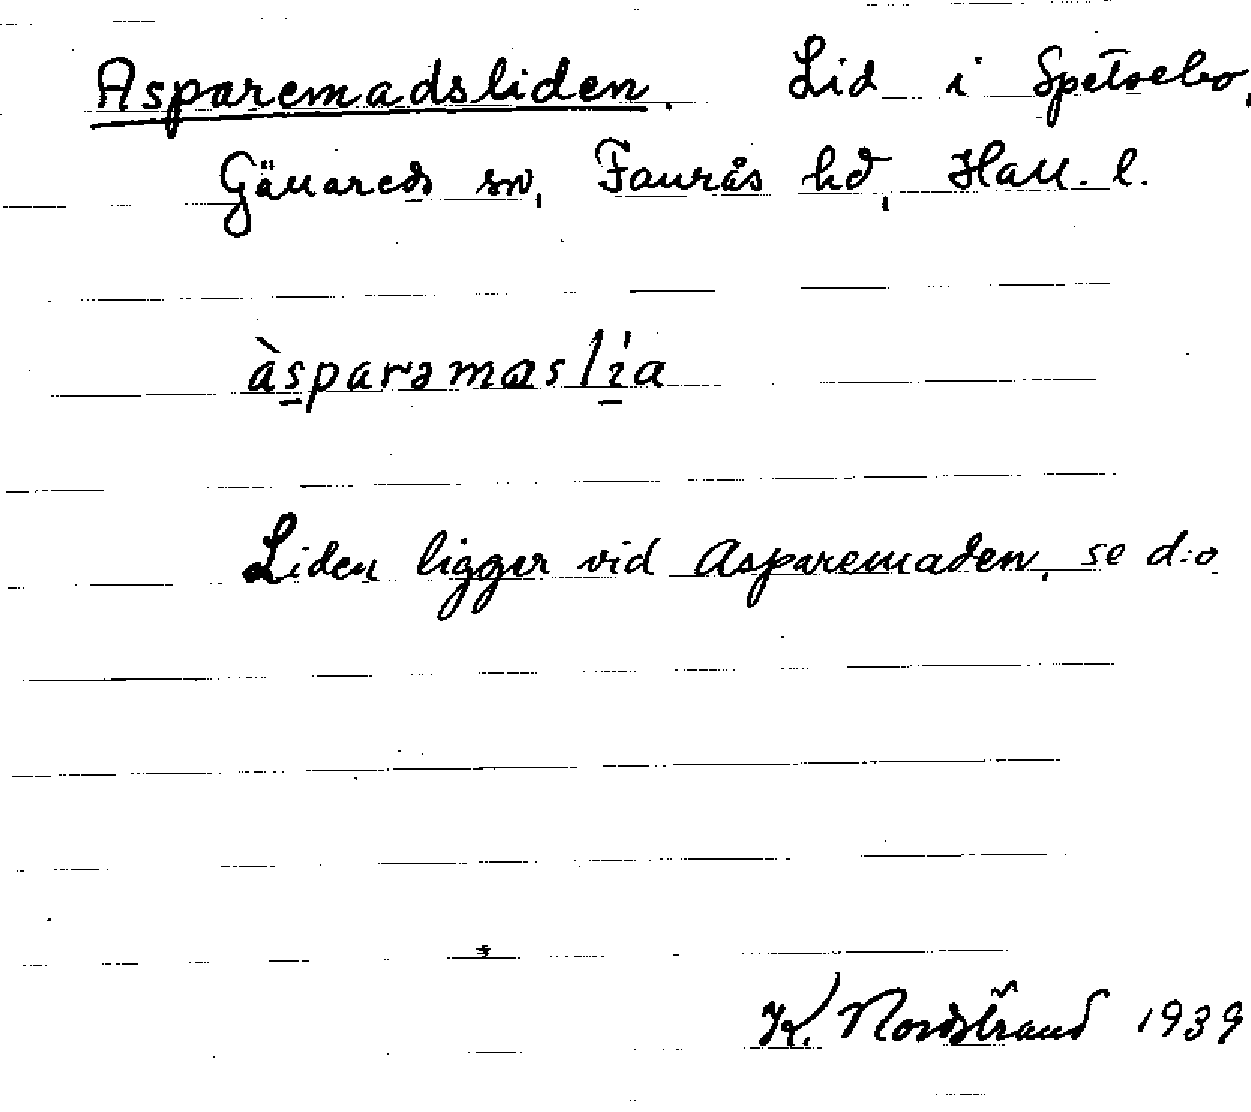 Asparemadsliden. Lid i Spetsebo,
Gällareds sn, Faurås hd, Hall. l.
àsparəmaslía
Liden ligger vid Asparemaden, se d:o
K. Nordstrand 1939